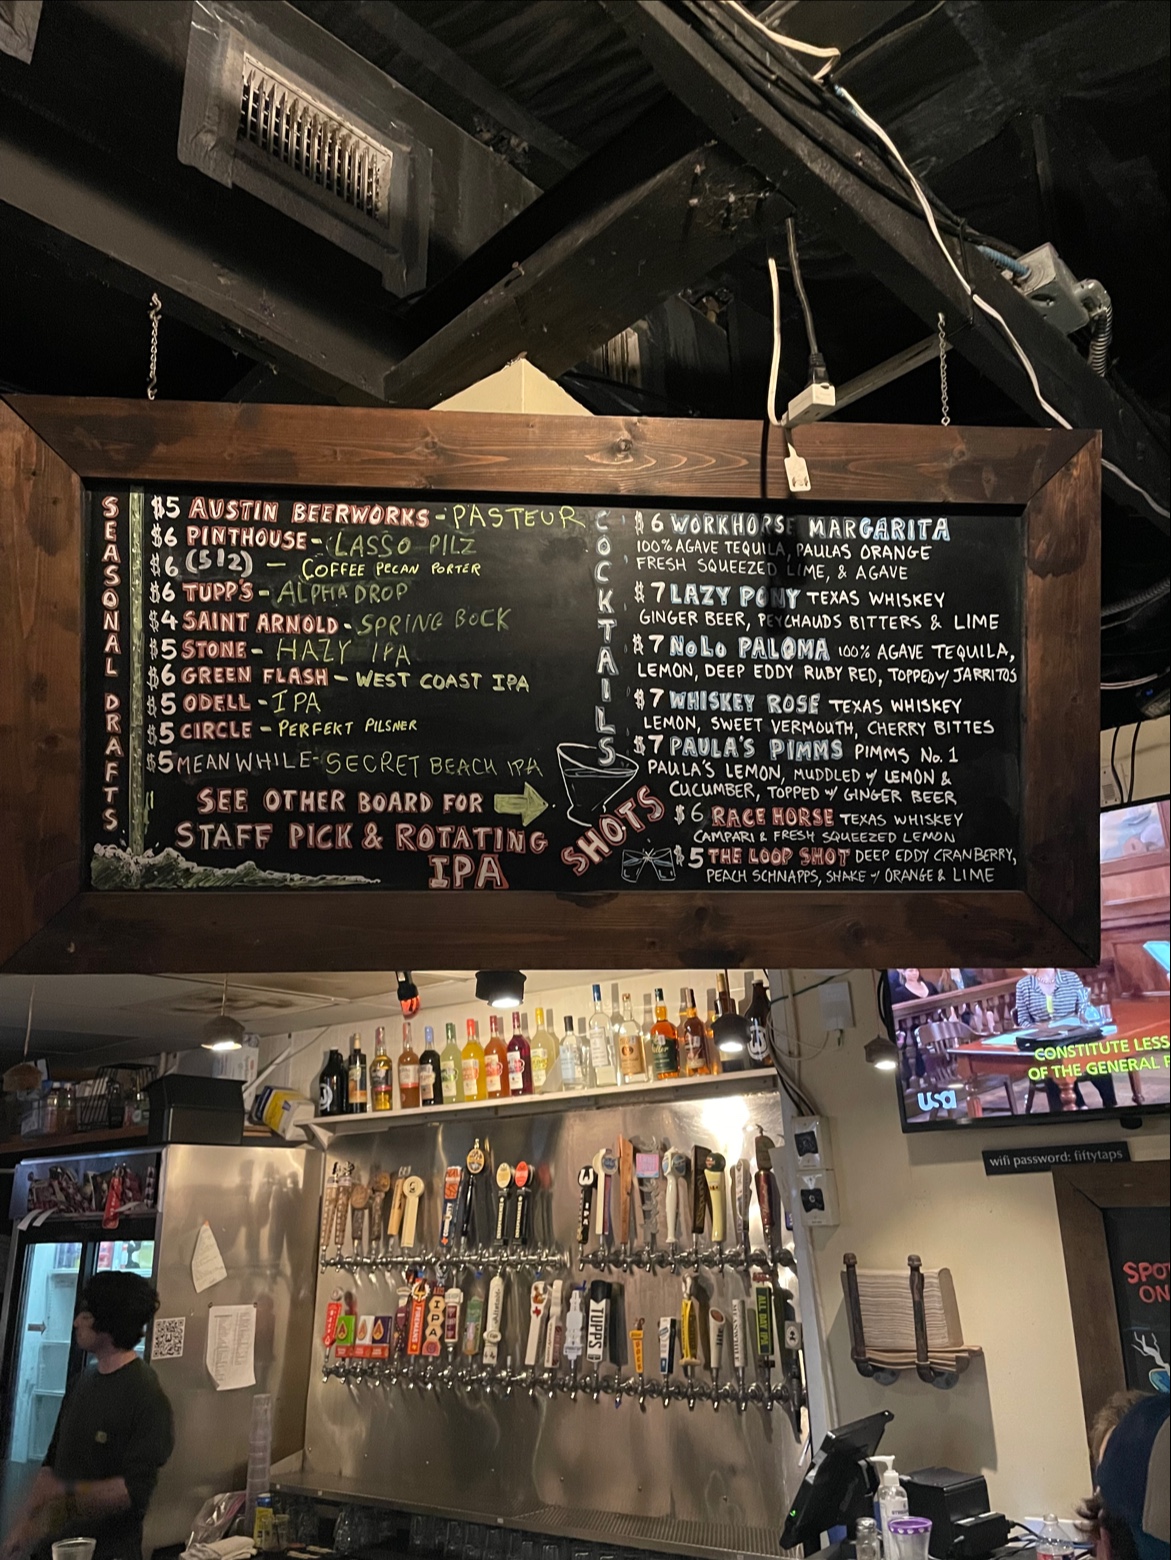 SEASONAL DRAFTS
$5 AUSTIN BEERWORKS - PASTEUR
$6 PINTHOUSE - LASSO PILZ
$6 (512) - COFFEE PECAN PORTER
$6 TUPP'S - ALPHA DROP
$4 SAINT ARNOLD - SPRING BOCK
$5 STONE - HAZY IPA
$6 GREEN FLASH - WEST COAST IPA
$5 ODELL - IPA
$5 CIRCLE - PERFEKT PILSNER
$5 MEANWHILE - SECRET BEACH IPA
SEE OTHER BOARD FOR
STAFF PICK & ROTATING
IPA
COCKTAILS
$6 WORKHORSE MARGARITA
100% AGAVE TEQUILA, PAULAS ORANGE
FRESH SQUEEZED LIME, & AGAVE
$7 LAZY PONY TEXAS WHISKEY
GINGER BEER, PEYCHAUDS BITTERS & LIME
$7 NOLO PALOMA 100% AGAVE TEQUILA,
LEMON, DEEP EDDY RUBY RED, TOPPED W/ JARRITOS
$7 WHISKEY ROSE TEXAS WHISKEY
LEMON, SWEET VERMOUTH, CHERRY BITTES
$7 PAULA'S PIMMS PIMMS No. 1
PAULA'S LEMON, MUDDLED W/ LEMON &
CUCUMBER, TOPPED W/ GINGER BEER
SHOTS
$6 RACE HORSE TEXAS WHISKEY
CAMPARI & FRESH SQUEEZED LEMON
$5 THE LOOP SHOT DEEP EDDY CRANBERRY,
PEACH SCHNAPPS, SHAKE W/ ORANGE & LIME
CONSTITUTE LESS
OF THE GENERAL
usa
wifi password: fiftytaps
IPA
TUPPS
SPO
ON